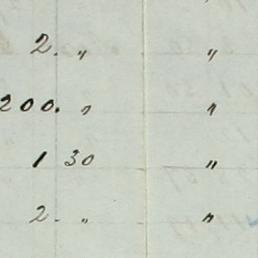 2. " "
200. " "
1 30 "
2. " "